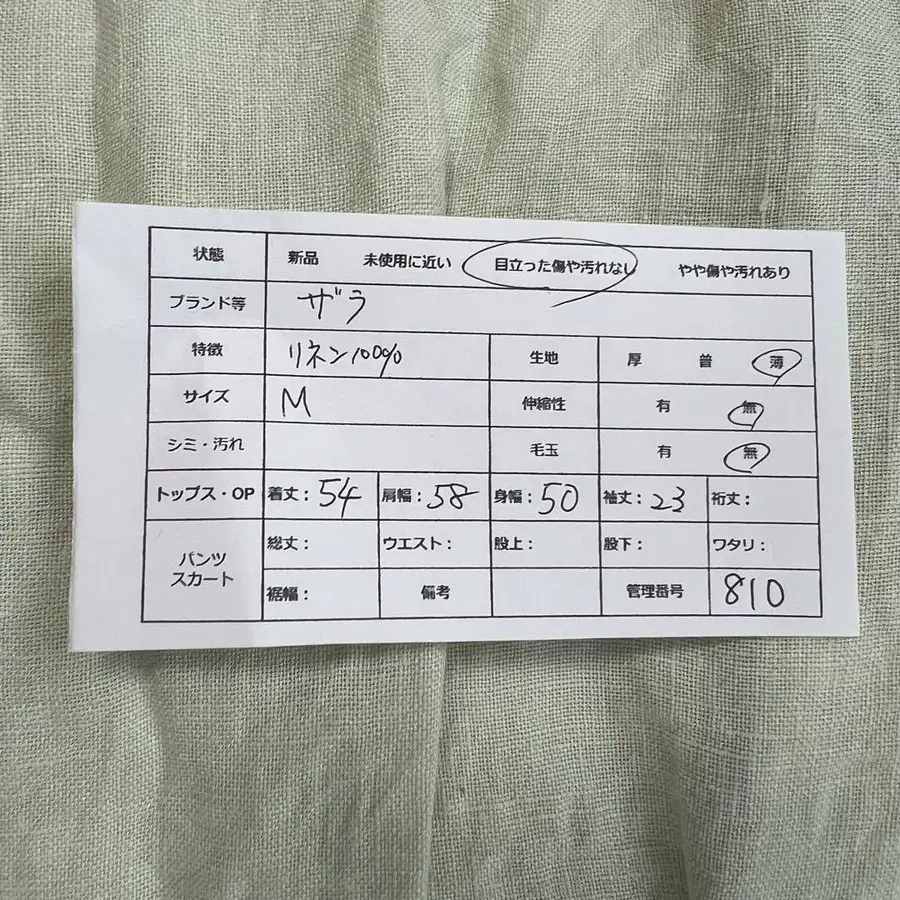 状態 新品 未使用に近い 目立った傷や汚れなし やや傷や汚れあり
ブランド等 ザラ
特徴 リネン100% 生地 厚 普 薄
サイズ M 伸縮性 有 無
シミ・汚れ 毛玉 有 無
トップス・OP 着丈：54 肩幅：58 身幅：50 袖丈：23 裄丈：
パンツ スカート 総丈： ウエスト： 股上： 股下： ワタリ：
裾幅： 備考 管理番号 810